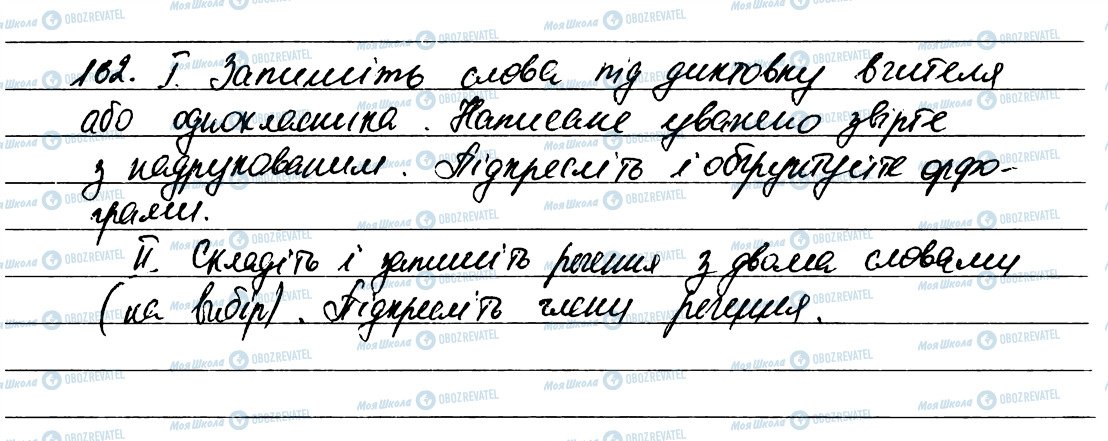 162. І. Запишіть слова під диктовку вчителя
або однокласника. Написане уважно звірте
з надрукованим. Підкресліть і обґрунтуйте орфо-
грами.
ІІ. Складіть і запишіть речення з двома словами
(на вибір). Підкресліть члени речення.